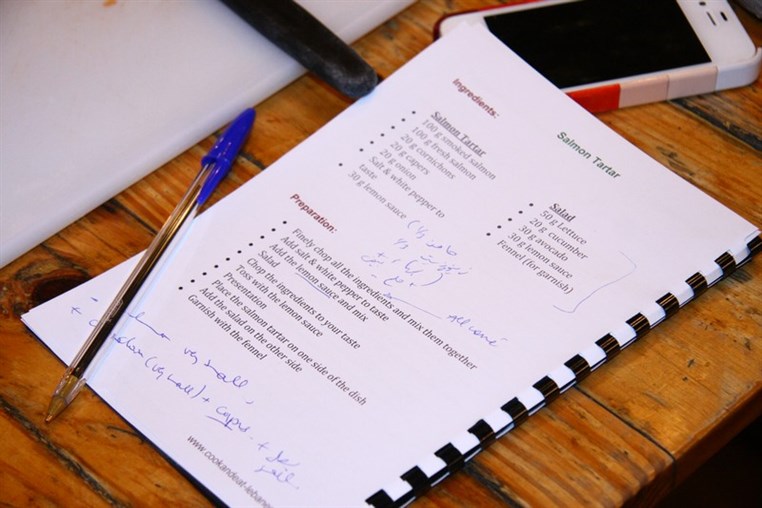 Salmon Tartar
Ingredients:
Salmon Tartar
• 100 g smoked salmon
• 100 g fresh salmon
• 20 g cornichons
• 20 g capers
• 20 g onion
• Salt & white pepper to
taste
• 30 g lemon sauce
Salad
• 50 g Lettuce
• 20 g cucumber
• 30 g avocado
• 30 g lemon sauce
• Fennel (for garnish)
Preparation:
• Finely chop all the ingredients and mix them together
• Add salt & white pepper to taste
• Add the lemon sauce and mix
• Salad
• Chop the ingredients to your taste
• Toss with the lemon sauce
• Presentation
• Place the salmon tartar on one side of the dish
• Add the salad on the other side
• Garnish with the fennel
very small,
(very small) +
www.cookandeat-leban